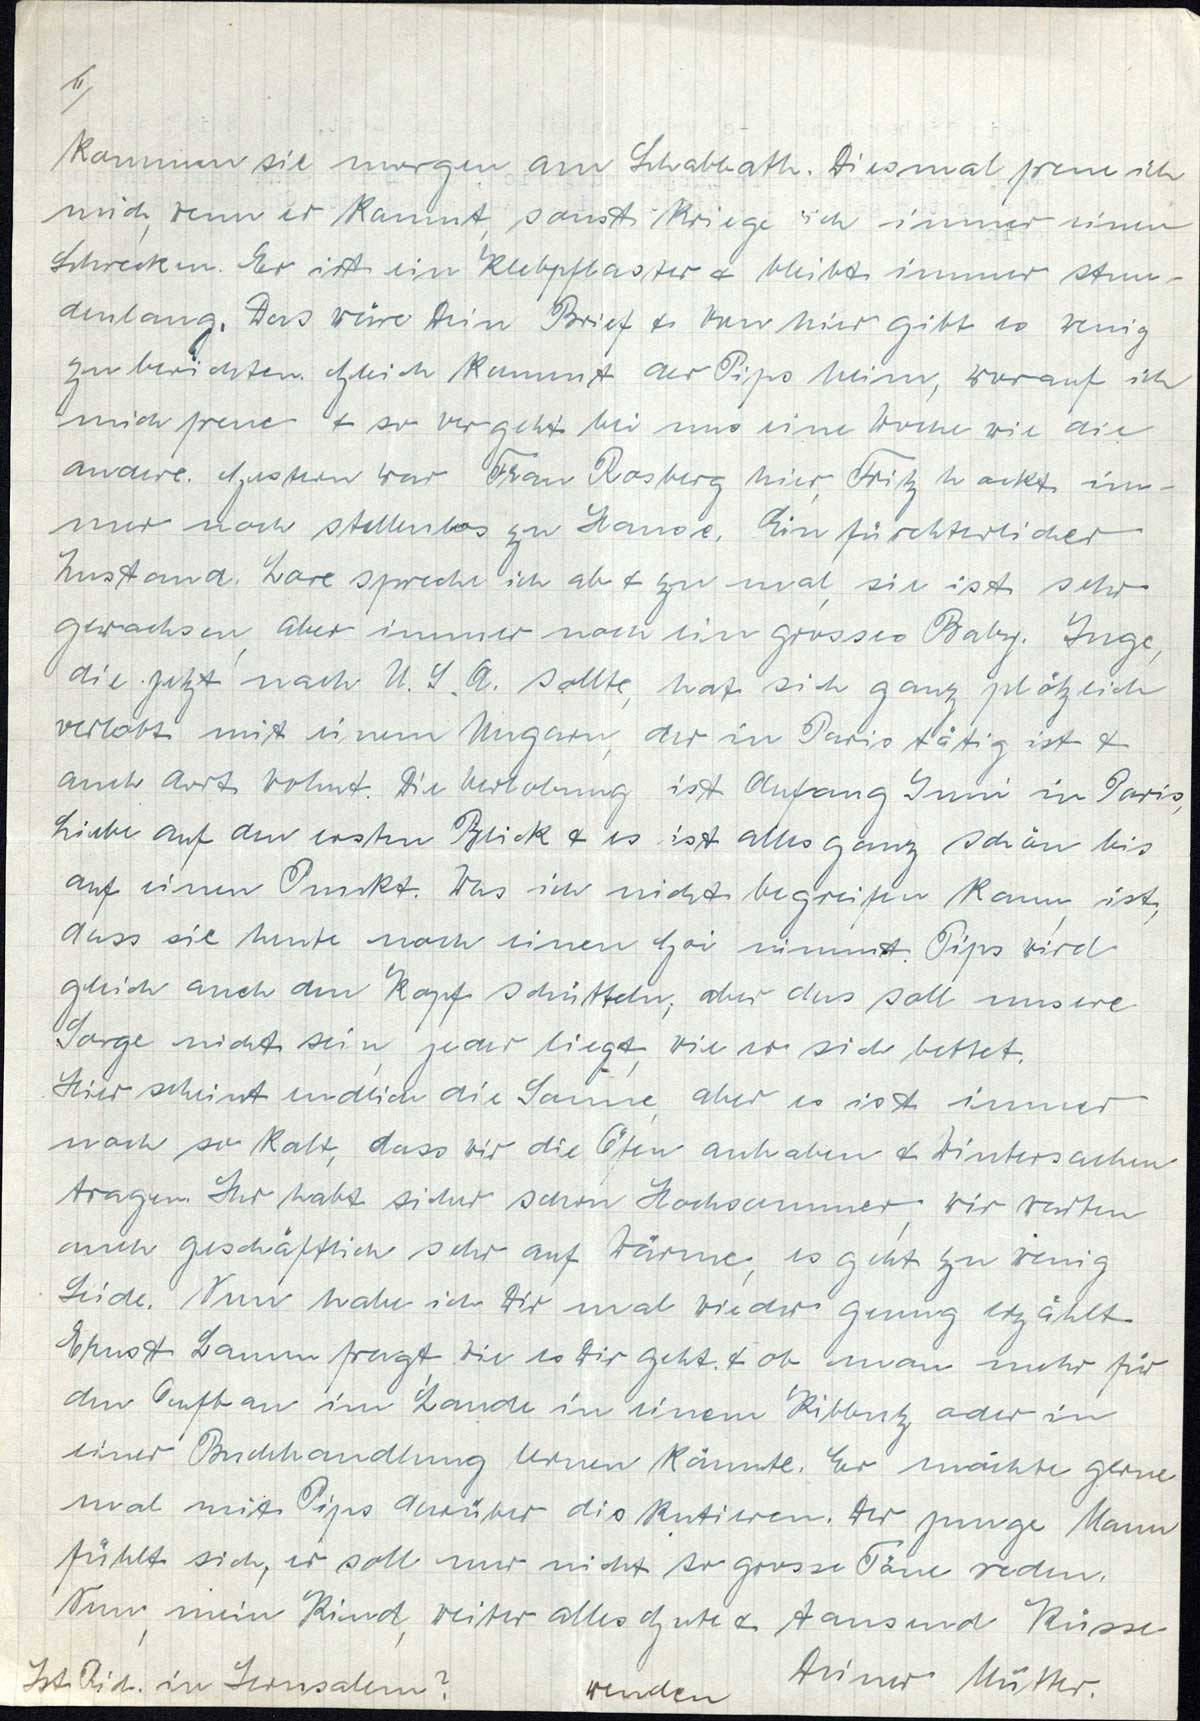 II/
kommen sie morgen am Schabbath. Diesmal freue ich
mich, wenn er kommt, sonst kriege ich immer einen
Schrecken. Er ist ein Klebpflaster & bleibt immer stun-
denlang. Das wäre Dein Brief & von hier gibt es wenig
zu berichten. Gleich kommt der Pips heim, worauf ich
mich freue & so vergeht bei uns eine Woche wie die
andere. Gestern war Frau Rosberg hier, Fritz hockt im-
mer noch stellenlos zu Hause. Ein fürchterlicher
Zustand. Lore spreche ich ab & zu mal, sie ist sehr
gewachsen, aber immer noch ein grosses Baby. Inge,
die jetzt nach U.S.A. sollte, hat sich ganz plötzlich
verlobt mit einem Ungarn, der in Paris tätig ist &
auch dort wohnt. Die Verlobung ist Anfang Juni in Paris,
Liebe auf den ersten Blick & es ist alles ganz schön bis
auf einen Punkt. Was ich nicht begreifen kann, ist,
dass sie heute noch einen Goi nimmt. Pips wird
gleich auch den Kopf schütteln, aber das soll unsere
Sorge nicht sein, jeder liegt, wie er sich bettet.
Hier scheint endlich die Sonne, aber es ist immer
noch so kalt, dass wir die Öfen anhaben & Wintersachen
tragen. Ihr habt sicher schon Hochsommer, wir warten
auch geschäftlich sehr auf Wärme, es geht zu wenig
Seide. Nun habe ich Dir mal wieder genug erzählt
Ernst Lamm fragt, wie es Dir geht & ob man mehr für
den Aufbau im Lande in einem Kibbutz oder in
einer Buchhandlung lernen könnte. Er möchte gerne
mal mit Pips darüber diskutieren. Der junge Mann
fühlt sich, er soll nur nicht so grosse Töne reden.
Nun, mein Kind, weiter alles Gute & tausend Küsse
Deiner Mutter.
Ist Rich. in Jerusalem? wenden